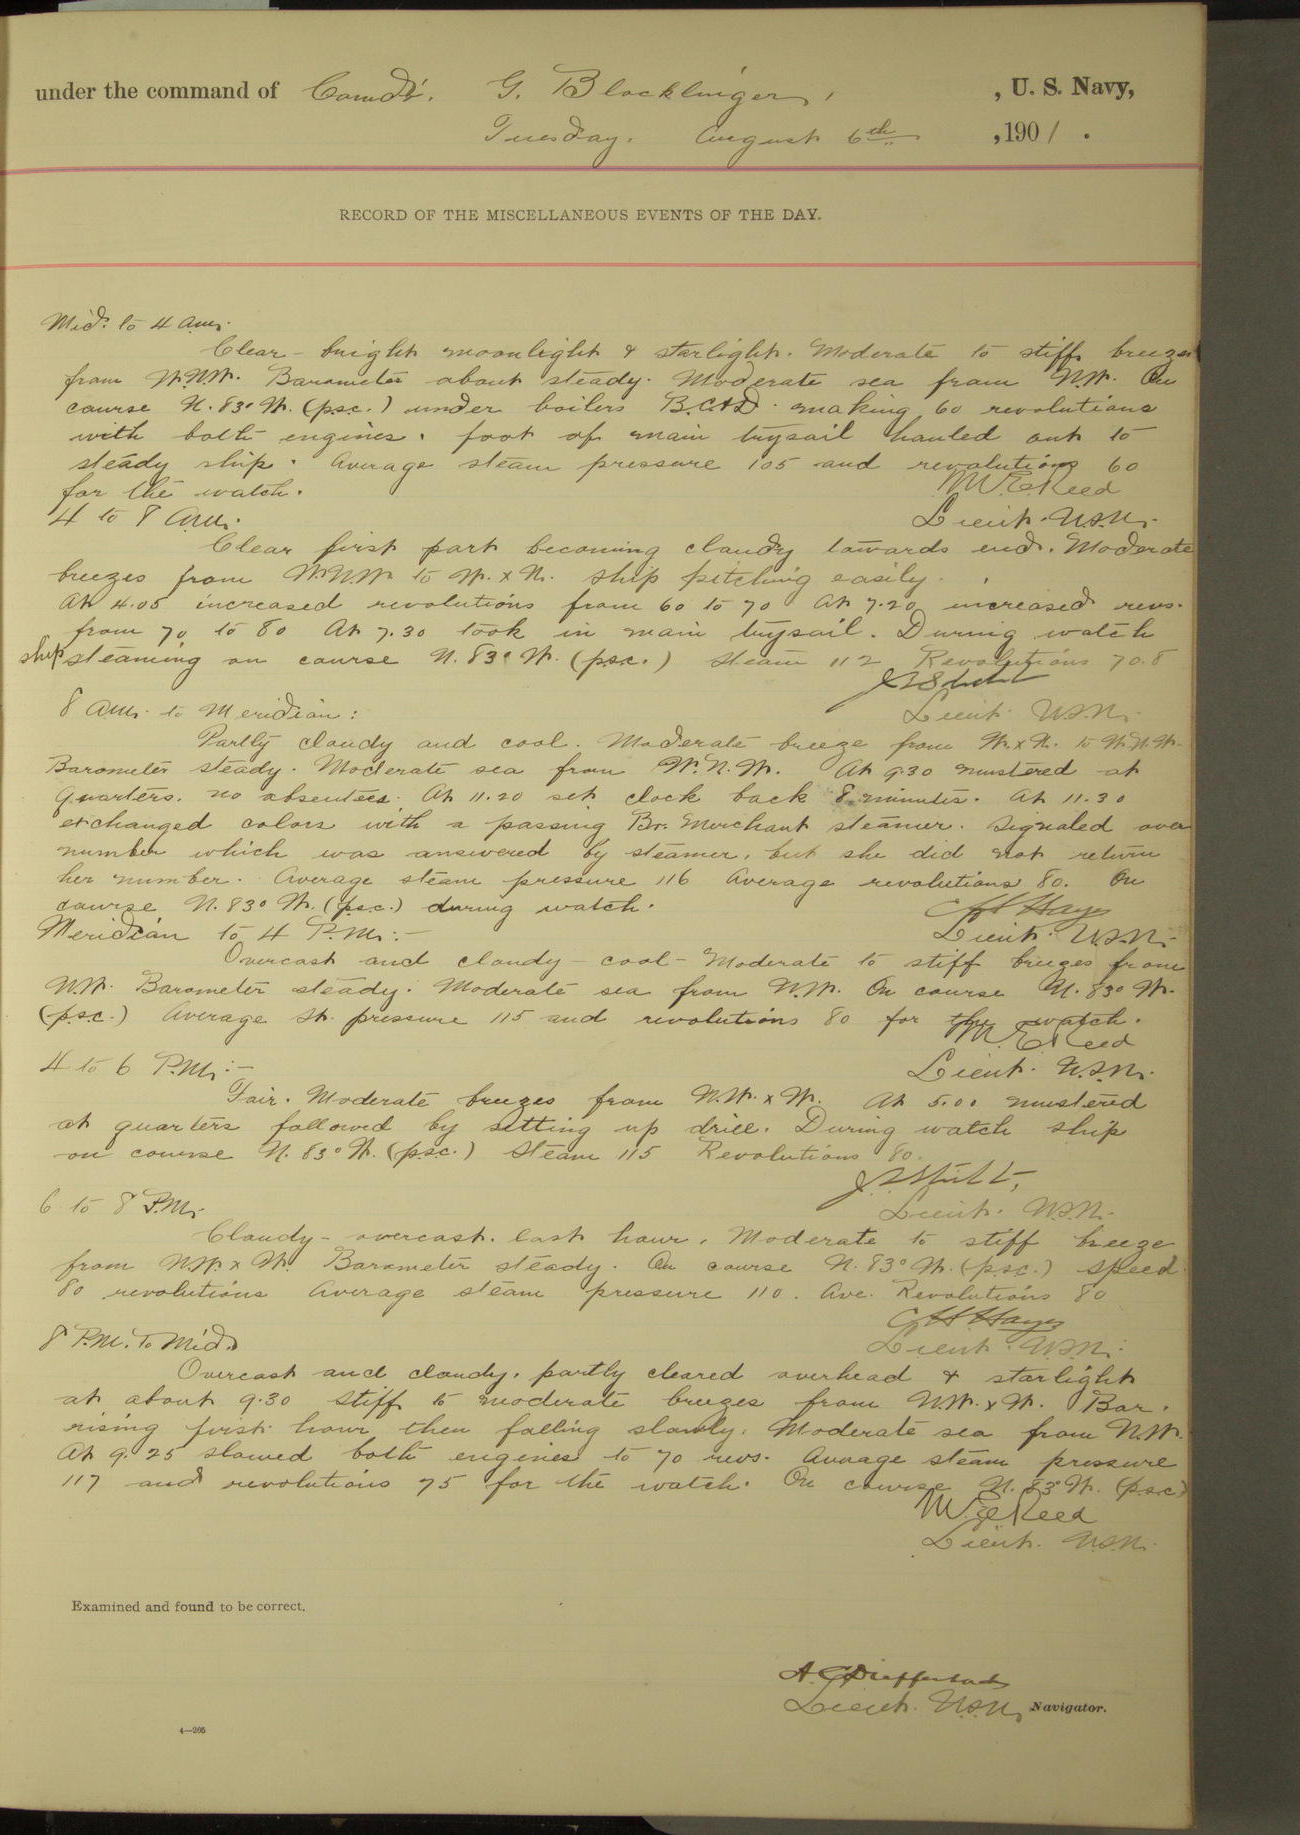 under the command of Comd'r. G. Blocklinger, , U. S. Navy,
Tuesday. August 6th , 1901 .
RECORD OF THE MISCELLANEOUS EVENTS OF THE DAY.
Mid. to 4 a.m.
Clear - bright moonlight & starlight. Moderate to stiff breezes
from W.N.W. Barometer about steady. Moderate sea from N.W. On
course N. 83° W. (p.s.c.) under boilers B.C.&D. making 60 revolutions
with both engines. foot of main trysail hauled out to
steady ship. Average steam pressure 105 and revolutions 60
for the watch. M.E. Reed
4 to 8 a.m. Lieut. U.S.N.
Clear first part becoming cloudy towards end. Moderate
breezes from W.N.W. to W. x N. Ship pitching easily.
At 4.05 increased revolutions from 60 to 70 At 7.20 increased revs.
from 70 to 80 At 7.30 took in main trysail. During watch
ship steaming on course N. 83° W. (p.s.c.) Steam 112 Revolutions 70.8
8 a.m. to Meridian: Lieut. U.S.N.
Partly cloudy and cool. Moderate breeze from W. x N. to W.N.W.
Barometer steady. Moderate sea from W.N.W. At 9.30 mustered at
quarters. no absentees. At 11.20 set clock back 8 minutes. At 11.30
exchanged colors with a passing Br. Merchant steamer. Signaled over
number which was answered by steamer, but she did not return
her number. Average steam pressure 116 Average revolutions 80. On
course N. 83° W. (p.s.c.) during watch. C.H. Hayes
Meridian to 4 P.M.:- Lieut. U.S.N.
Overcast and cloudy - cool - Moderate to stiff breezes from
N.W. Barometer steady. Moderate sea from N.W. On course N. 83° W.
(p.s.c.) Average St. pressure 115 and revolutions 80 for the watch.
M.E. Reed
4 to 6 P.M.:- Lieut. U.S.N.
Fair. Moderate breezes from N.W. x W. At 5.00 mustered
at quarters followed by setting up drill. During watch ship
on course N. 83° W. (p.s.c.) Steam 115 Revolutions 80.
6 to 8 P.M. Lieut. U.S.N.
Cloudy - overcast. last hour. Moderate to stiff breeze
from N.W. x W. Barometer steady. On course N. 83° W. (p.s.c.) speed
80 revolutions Average steam pressure 110. Ave. Revolutions 80
C.H. Hayes
8 P.M. to Mid. Lieut. U.S.N.
Overcast and cloudy. partly cleared overhead & starlight
at about 9.30 Stiff to moderate breezes from N.W. x W. Bar.
rising first hour then falling slowly. Moderate sea from N.W.
At 9.25 slowed both engines to 70 revs. Average steam pressure
117 and revolutions 75 for the watch. On course N. 83° W. (p.s.c.)
M.E. Reed
Lieut. U.S.N.
Examined and found to be correct.
A.C. Dieffenbach
Lieut. U.S.N. Navigator.
4—265